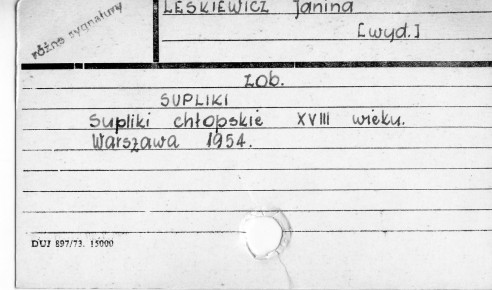 różne sygnatury
LESKIEWICZ Janina
[wyd.]
zob.
SUPLIKI
Supliki chłopskie XVIII wieku.
Warszawa 1954.
DUJ 897/73. 15000